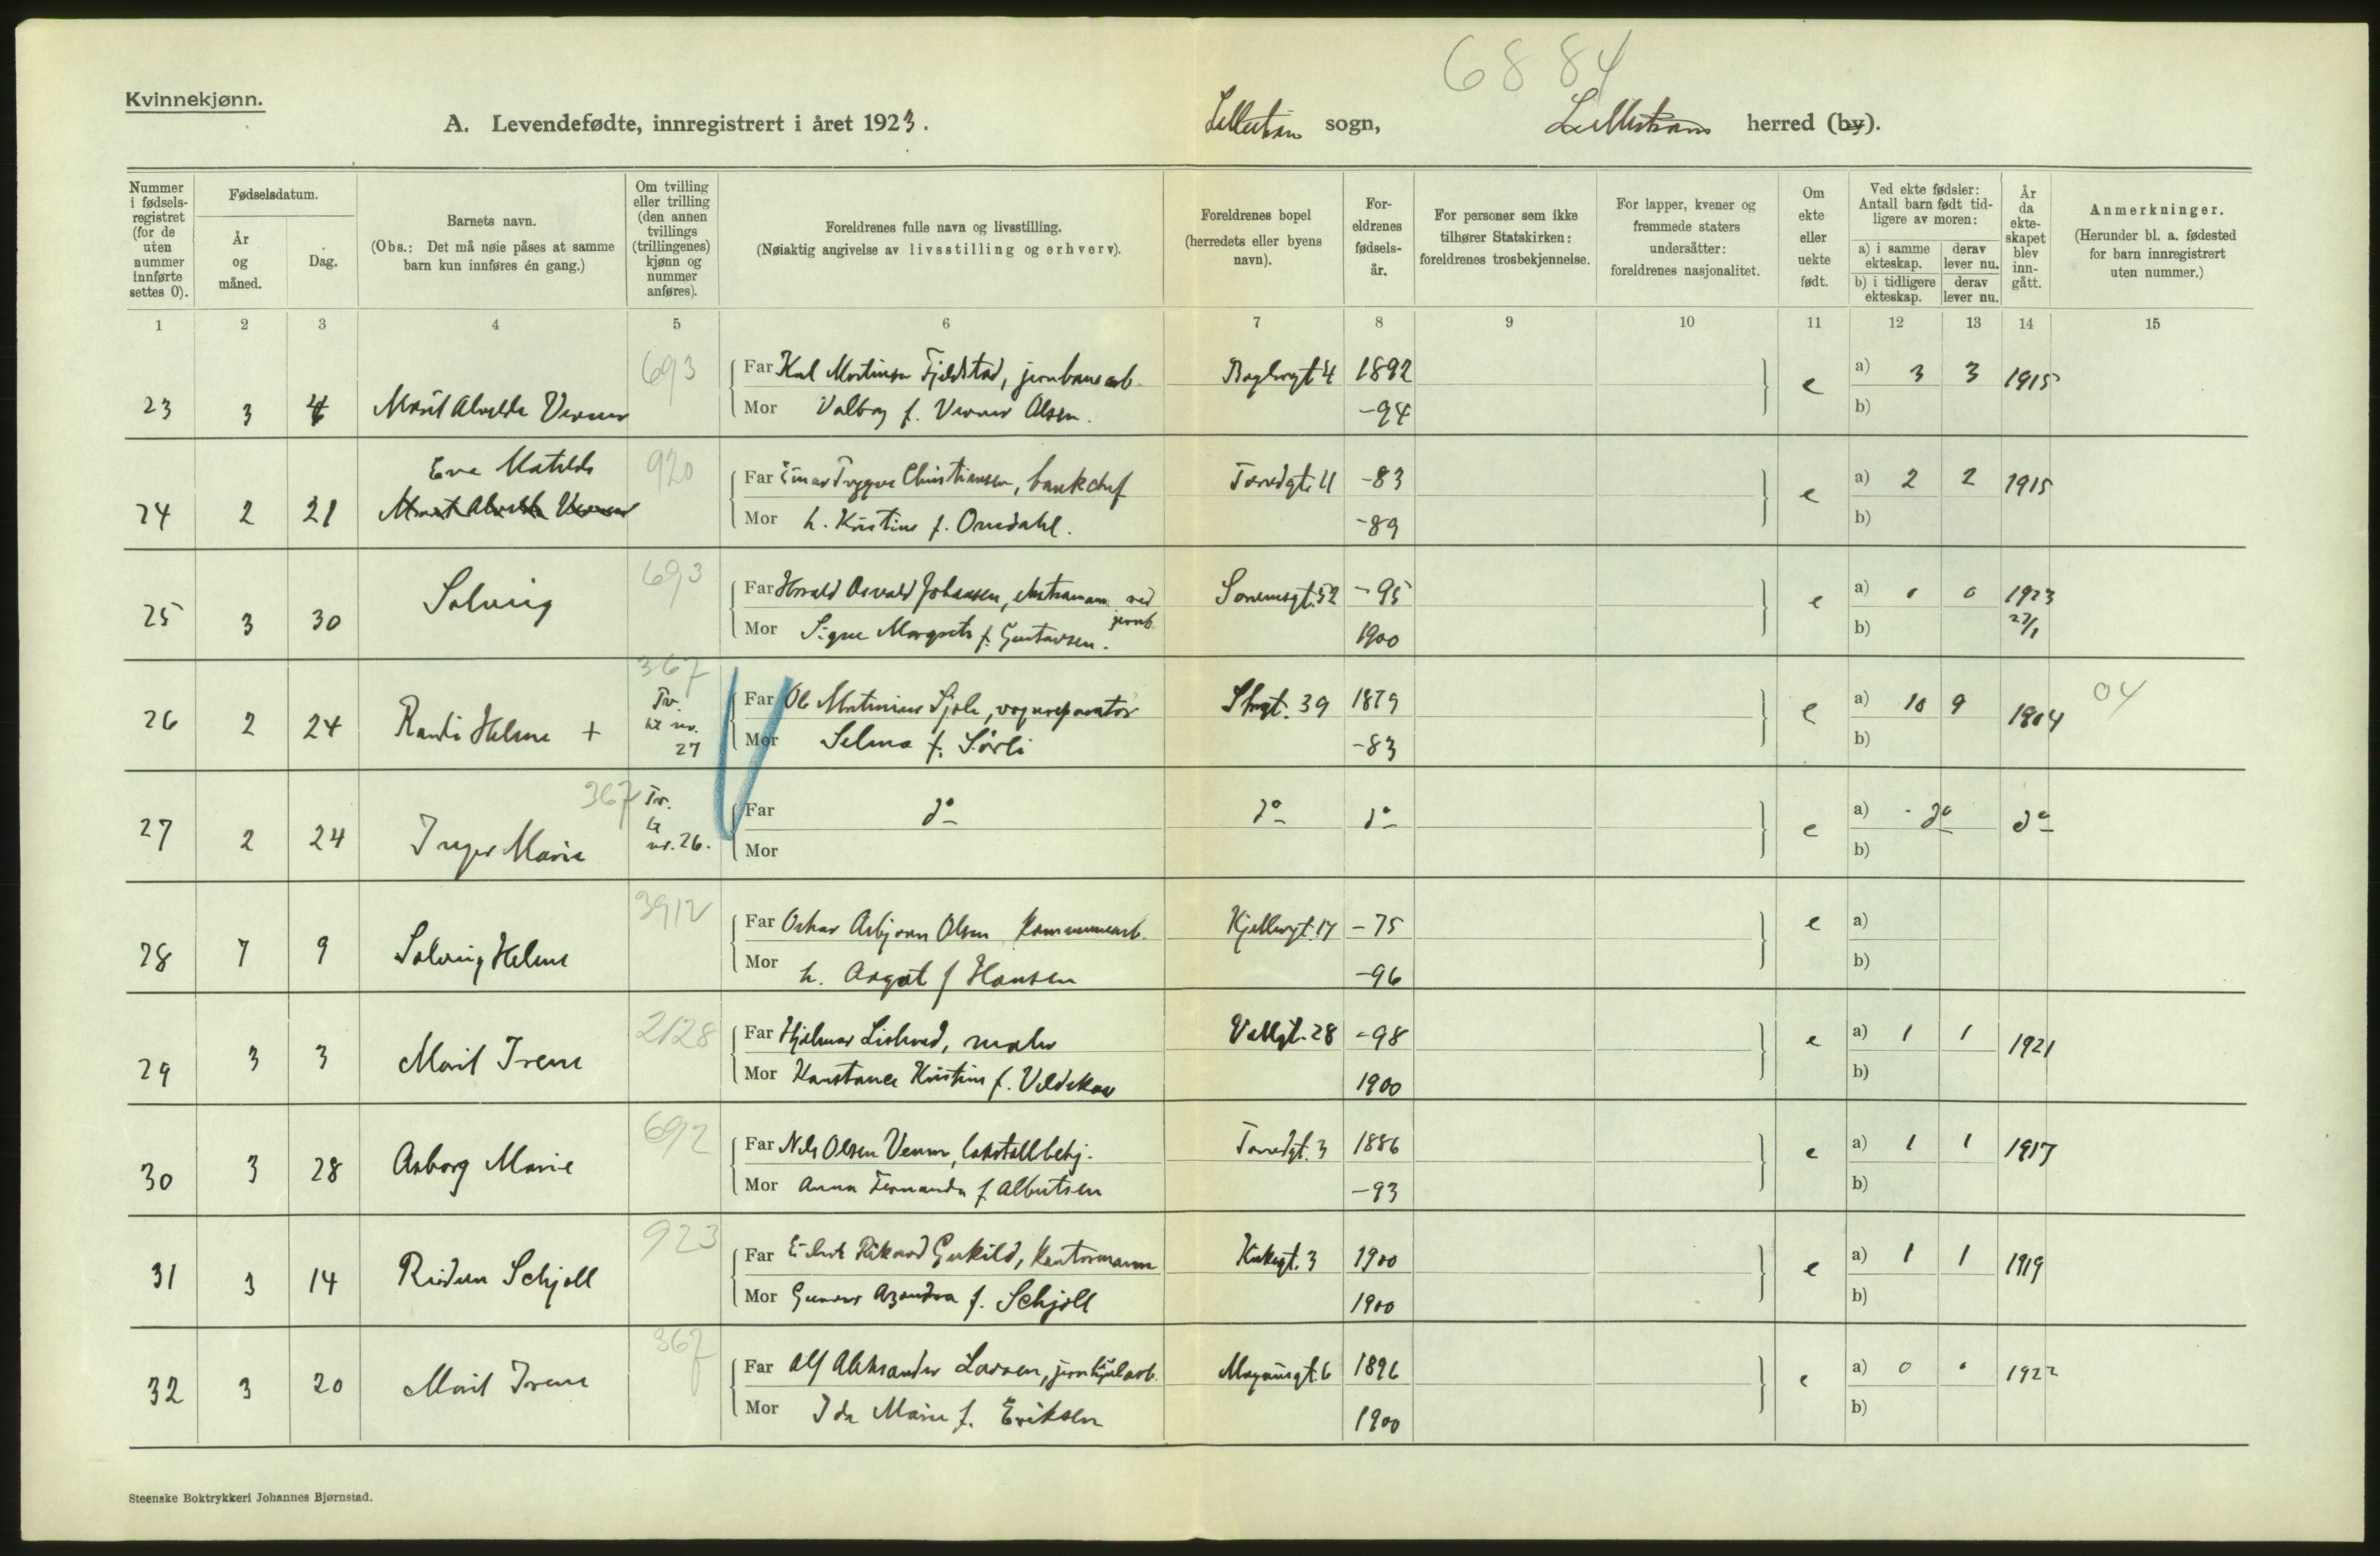 6884
Kvinnekjønn.
A. Levendefødte, innregistrert i året 1923. Lillestrøm sogn, Lillestrøm herred (by).
Nummer i fødsels-registret (for de uten nummer innførte settes 0).
Fødselsdatum.
År og måned.
Dag.
Barnets navn.
(Obs.: Det må nøie påses at samme barn kun innføres én gang.)
Om tvilling eller trilling (den annen tvillings (trillingenes) kjønn og nummer anføres).
Foreldrenes fulle navn og livsstilling.
(Nøiaktig angivelse av livsstilling og erhverv).
Foreldrenes bopel (herredets eller byens navn).
For-eldrenes fødsels-år.
For personer som ikke tilhører Statskirken: foreldrenes trosbekjennelse.
For lapper, kvener og fremmede staters undersåtter: foreldrenes nasjonalitet.
Om ekte eller uekte født.
Ved ekte fødsler: Antall barn født tid-ligere av moren:
a) i samme ekteskap.
derav lever nu.
b) i tidligere ekteskap.
derav lever nu.
År da ekte-skapet blev inn-gått.
Anmerkninger.
(Herunder bl. a. fødested for barn innregistrert uten nummer.)
1 2 3 4 5 6 7 8 9 10 11 12 13 14 15
693
Far Karl Martinsen Fjeldstad, jernbanearb. 4 1892 e a) 3 3 1915
23 3 4 Marit Alvilde Verner
Mor Valborg f. Verner Olsen. -94 b)
Eva Matilde 920
Far Einar Trygve Christiansen, bankchef Torvdgt. 11 -83 e a) 2 2 1915
24 2 21 Marit Alvilde Verner
Mor h. Kristine f. Omdahl. -89 b)
693
Far Harald Osvald Johansen, ekstramann ved jernb. 52 -95 e a) 0 0 1923
25 3 30 Solveig
Mor Signe Margrete f. Gustavsen. 1900 b) 27/1
367
Far Ole Martinius 39 1879 e a) 10 9 1904 04
26 2 24 Randi Helene + Tv. kv nr. 27
Mor Selma f. Sørli -83 b)
367
27 2 24 Inger Marie Tv. kv nr. 26.
Far do do do e a) do do
Mor b)
3912
Far Oskar Asbjørn Olsen kommunearb. Kjellergt. 17 -75 e a)
28 7 9 Solveig Helene
Mor h. Aagot f Hansen -96 b)
2128
Far Hjalmar maler Vollgt. 28 -98 e a) 1 1 1921
29 3 3 Marit Irene
Mor Konstance Kristine f. 1900 b)
692
Far Nils Olsen Venner, lokstallbetj. Torvdgt. 3 1886 e a) 1 1 1917
30 3 28 Aaborg Marie
Mor Anna Fernanda f Albertsen -93 b)
923
Far Rikard kontormann Kirkegt. 3 1900 e a) 1 1 1919
31 3 14 Reidun Schjøll
Mor Gunvor f. Schjøll 1900 b)
367
Far Alf Aleksander Larsen, Magnusgt. 6 1896 e a) 0 0 1922
32 3 20 Marit Irene
Mor Ida Marie f. Eriksen 1900 b)
Steenske Boktrykkeri Johannes Bjørnstad.